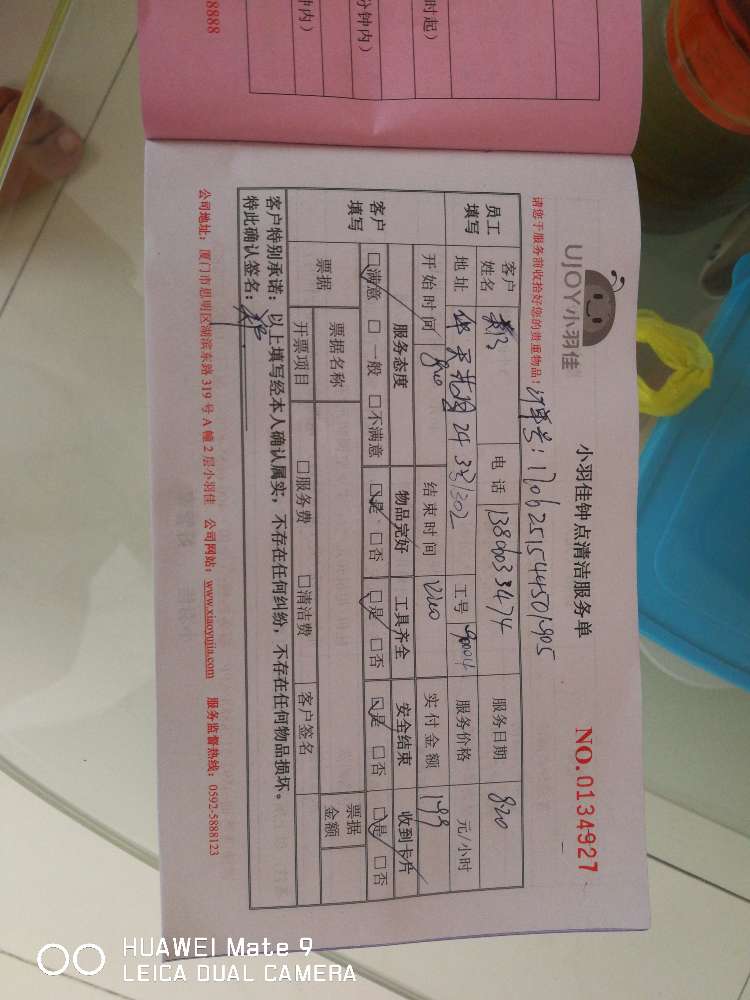 8888
时起）
分钟内）
钟内）
UJOY小羽佳
小羽佳钟点清洁服务单
NO.0134927
请您于服务前收拾好您的贵重物品！
订单号：1706251544501905
员工填写
客户姓名
电话
13806033474
服务日期
820
地址
24 33/302
工号
90004
服务价格
元/小时
开始时间
800
结束时间
实付金额
199
客户填写
服务态度
物品完好
工具齐全
安全结束
收到卡片
□满意 □一般 □不满意
□是 □否
□是 □否
□是 □否
□是 □否
票据
票据名称
票据金额
开票项目
□服务费 □清洁费
客户签名
客户特别承诺：以上填写经本人确认属实，不存在任何纠纷，不存在任何物品损坏。
特此确认签名：
公司地址：厦门市思明区湖滨东路319号A幢2层小羽佳 公司网站：www.xiaoyujia.com 服务监督热线：0592-5888123
HUAWEI Mate 9
LEICA DUAL CAMERA